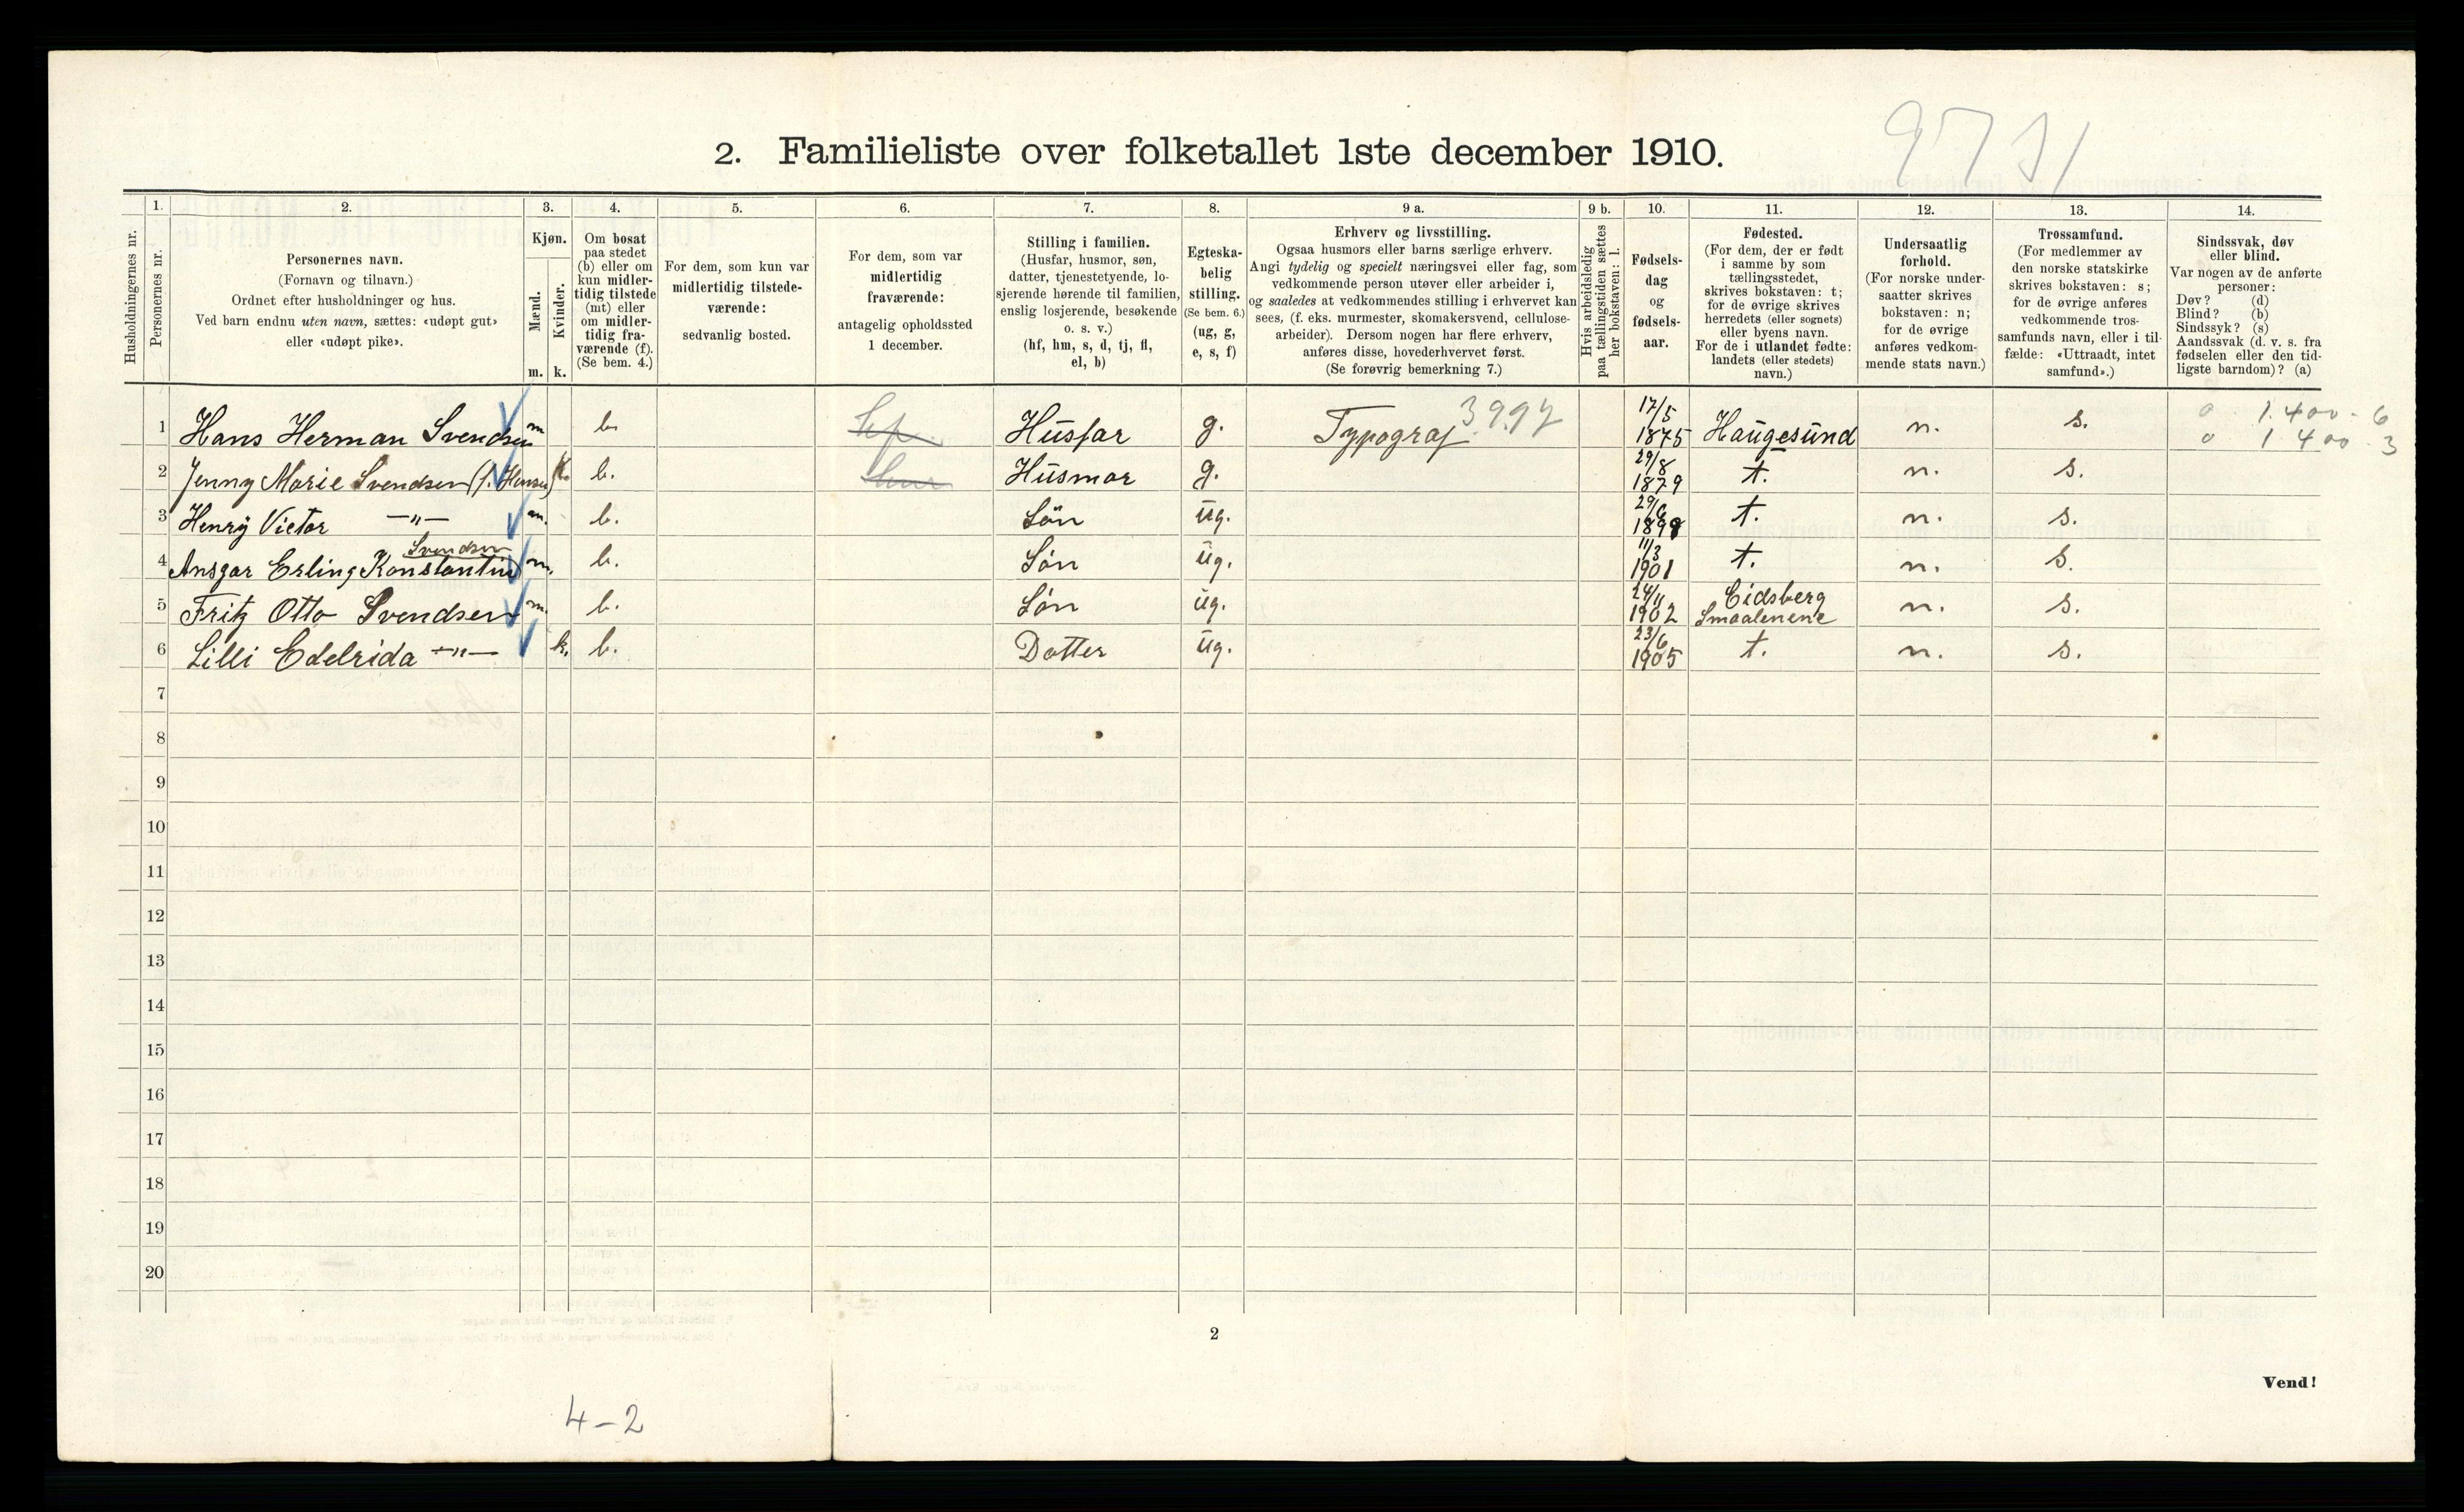 2. Familieliste over folketallet 1ste december 1910.
1. 2. 3. 4. 5. 6. 7. 8. 9 a. 9 b. 10. 11. 12. 13. 14.
Husholdningernes nr.
Personernes nr.
Personernes navn.
(Fornavn og tilnavn.)
Ordnet efter husholdninger og hus.
Ved barn endnu uten navn, sættes: «udøpt gut»
eller «udøpt pike».
Kjøn.
Mænd.
Kvinder.
m. k.
Om bosat
paa stedet
(b) eller om
kun midler-
tidig tilstede
(mt) eller
om midler-
tidig fra-
værende (f).
(Se bem. 4.)
For dem, som kun var
midlertidig tilstede-
værende:
sedvanlig bosted.
For dem, som var
midlertidig
fraværende:
antagelig opholdssted
1 december.
Stilling i familien.
(Husfar, husmor, søn,
datter, tjenestetyende, lo-
sjerende hørende til familien,
enslig losjerende, besøkende
o. s. v.)
(hf, hm, s, d, tj, fl,
el, b)
Egteska-
belig
stilling.
(Se bem. 6.)
(ug, g,
e, s, f)
Erhverv og livsstilling.
Ogsaa husmors eller barns særlige erhverv.
Angi tydelig og specielt næringsvei eller fag, som
vedkommende person utøver eller arbeider i,
og saaledes at vedkommendes stilling i erhvervet kan
sees, (f. eks. murmester, skomakersvend, cellulose-
arbeider). Dersom nogen har flere erhverv,
anføres disse, hovederhvervet først.
(Se forøvrig bemerkning 7.)
Hvis arbeidsledig
paa tællingstiden sættes
her bokstaven: l.
Fødsels-
dag
og
fødsels-
aar.
Fødested.
(For dem, der er født
i samme by som
tællingsstedet,
skrives bokstaven: t;
for de øvrige skrives
herredets (eller sognets)
eller byens navn.
For de i utlandet fødte:
landets (eller stedets)
navn.)
Undersaatlig
forhold.
(For norske under-
saatter skrives
bokstaven: n;
for de øvrige
anføres vedkom-
mende stats navn.)
Trossamfund.
(For medlemmer av
den norske statskirke
skrives bokstaven: s;
for de øvrige anføres
vedkommende tros-
samfunds navn, eller i til-
fælde: «Uttraadt, intet
samfund».)
Sindssvak, døv
eller blind.
Var nogen av de anførte
personer:
Døv? (d)
Blind? (b)
Sindssyk? (s)
Aandssvak (d. v. s. fra
fødselen eller den tid-
ligste barndom)? (a)
1 Hans Herman Svendsen m b. Husfar g. Typograf 3997 17/5 1875 Haugesund n. s. 0 1.400 - 6
0 1 400 - 3
2 Jenny Marie Svendsen (f. Hansen) k. b. Husmor g. 29/8 1879 t. n. s.
3 Henry Victor —"— m. b. Sön ug. 29/6 1898 t. n. s.
4 Ansgar Erling Konstantin Svendsen m. b. Sön ug. 11/3 1901 t. n. s.
5 Fritz Otto Svendsen m. b. Sön ug. 24/11 1902 Eidsberg Smaalenene n. s.
6 Lilli Edelrida —"— k. b. Datter ug. 23/6 1905 t. n. s.
7
8
9
10
11
12
13
14
15
16
17
18
19
20
2
Vend!
4-2